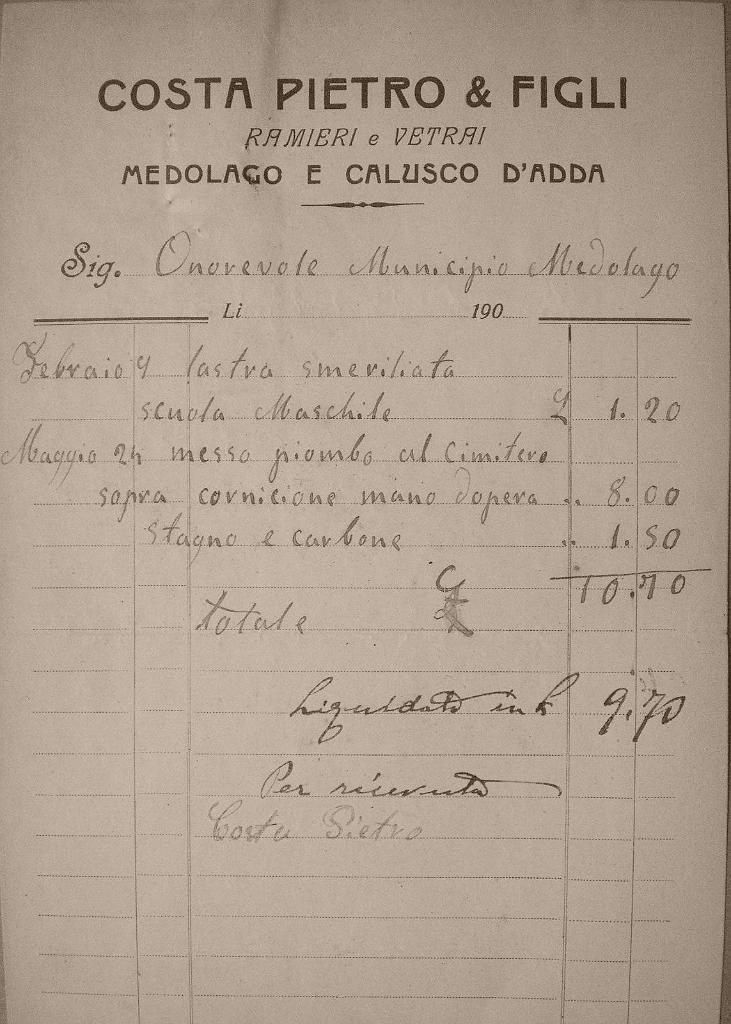 COSTA PIETRO & FIGLI
RAMIERI e VETRAI
MEDOLAGO E CALUSCO D'ADDA
Sig. Onorevole Municipio Medolago
Li 190
Febraio 9 lastra smeriliata
scuola Maschile £ 1.20
Maggio 24 messo piombo al Cimitero
sopra cornicione mano dopera .. 8.00
stagno e carbone .. 1.50
totale £ 10.70
Liquidato in L 9.70
Per ricevuta
Costa Pietro